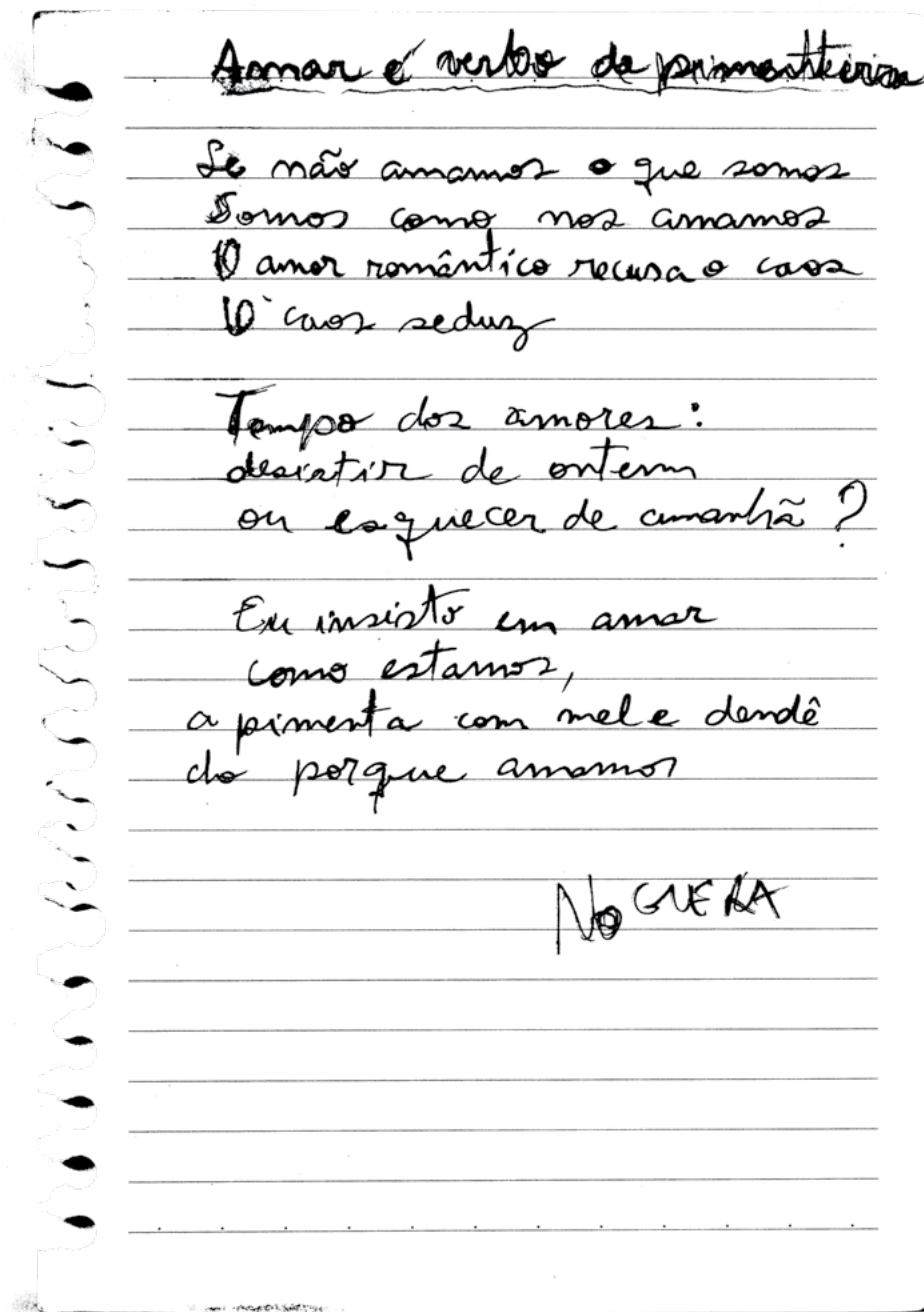 Amar é verbo da pimenteira
Se não amamos o que somos
Somos como nos amamos
O amor romântico recusa o caos
O caos seduz
Tempo dos amores:
desistir de ontem
ou esquecer de amanhã?
Eu insisto em amar
como estamos,
a pimenta com mel e dendê
do porque amamos
NOGUERA